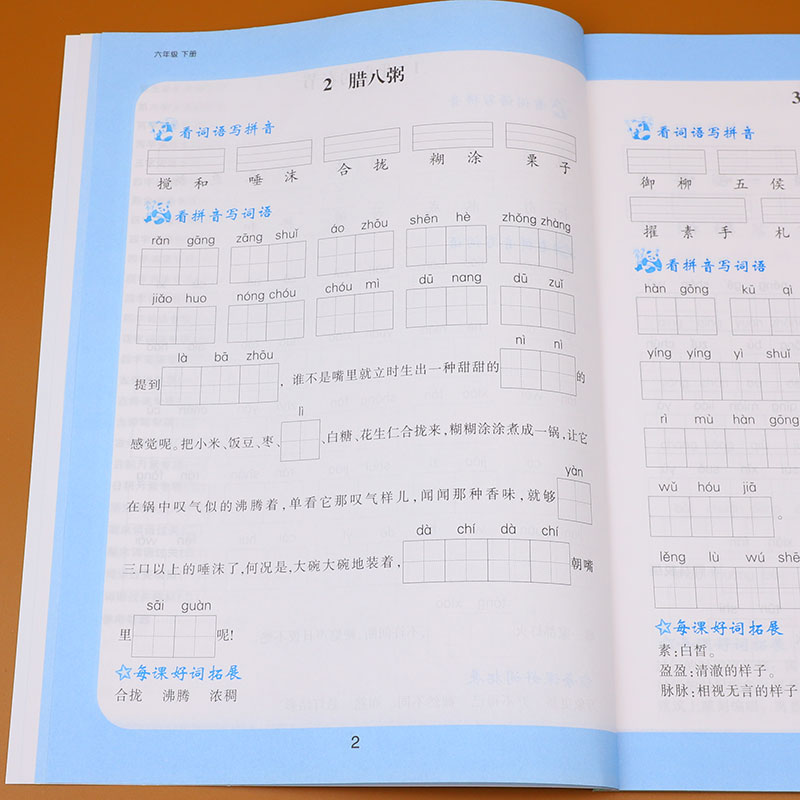 六年级 下册
2 腊八粥
看词语写拼音
搅和 唾沫 合拢 糊涂 栗子
看拼音写词语
rǎn gāng zāng shuǐ áo zhōu shēn hè zhǒng zhàng
jiǎo huo nóng chóu chóu mì dū nang dū zuǐ
là bā zhōu nì nì
提到 ，谁不是嘴里就立时生出一种甜甜的 的
lì
感觉呢。把小米、饭豆、枣、 、白糖、花生仁合拢来，糊糊涂涂煮成一锅，让它
yàn
在锅中叹气似的沸腾着，单看它那叹气样儿，闻闻那种香味，就够
dà chí dà chí
三口以上的唾沫了，何况是，大碗大碗地装着， 朝嘴
sāi guàn
里 呢！
每课好词拓展
合拢 沸腾 浓稠
2
3
看词语写拼音
御柳 五侯
擢素手 札
看拼音写词语
hàn gōng kū qì
yíng yíng yì shuǐ
rì mù hàn gōng
wǔ hóu jiā
。
lěng lù wú shē
每课好词拓展
素：白皙。
盈盈：清澈的样子。
脉脉：相视无言的样子